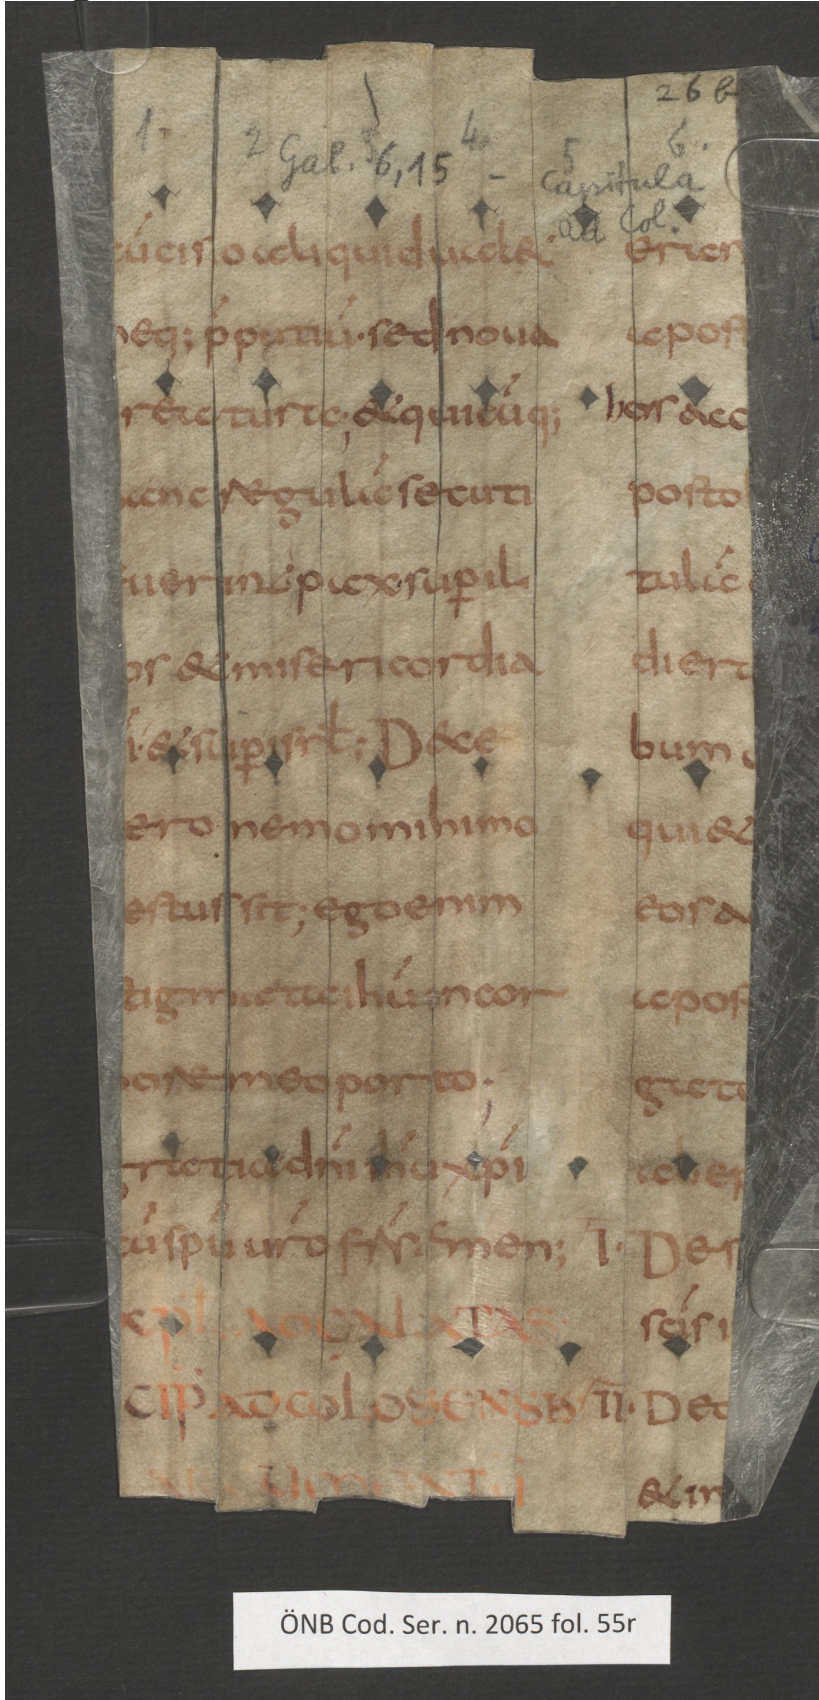 26 b
1. 2 3 4. 5 6.
Gal. 6,15 - Capitula
ad Col.
cũcisio aliquid ualet
neq; p̃putiũ. sed noua
reatura; & quicũq;
anc regulã secuti
uerint pax sup il
os & misericordia
i. & sup isrł; De ce
ero nemo mihi mo
estus sit; ego enim
tigmata ihũ in cor
pore meo porto.
gratia dñi ihũ xp̃i
cũ spũ uro frs. amen;
expł ad galatas
CIP AD COLOSENSIS
ARGUMENTŨ
ericen
apost
hos & ec
posto
talic
dierc
bum
qui &
eos a
apos
grata
aber
I. De s
scis i
II. De c
& in
ÖNB Cod. Ser. n. 2065 fol. 55r